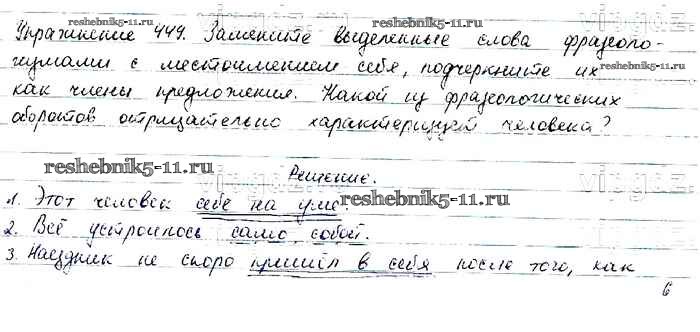 reshebnik5-11.ru
Упражнение 449. Замените выделенные слова фразеоло-
reshebnik5-11.ru
гизмами с местоимением себя, подчеркните их
как члены предложения. Какой из фразеологических
оборотов отрицательно характеризует человека?
reshebnik5-11.ru
Решение.
1. Этот человек себе на уме.
reshebnik5-11.ru
2. Всё устроилось само собой.
3. Наездник не скоро пришёл в себя после того, как
6